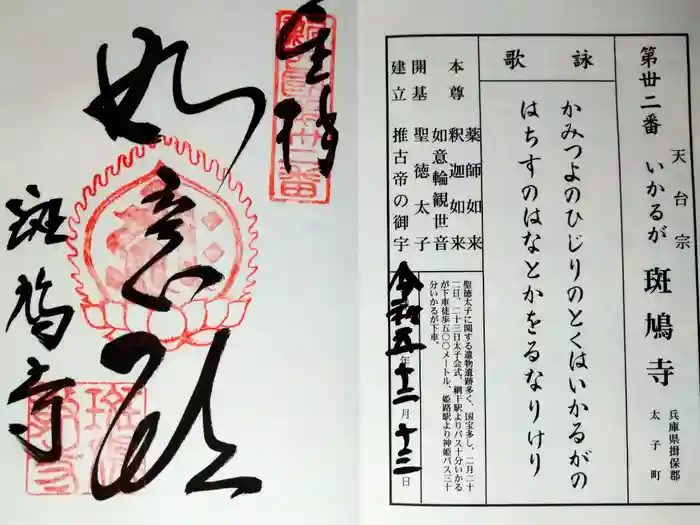 第廿二番
天台宗
いかるが
斑鳩寺
兵庫県揖保郡
太子町
詠歌
かみつよのひじりのとくはいかるがの
はちすのはなとかをるなりけり
本尊
薬師如来
釈迦如来
如意輪観世音
開基 聖徳太子
建立 推古帝の御宇
聖徳太子に関する遺物遺跡多く、国宝多し、二月二十
二日、二十三日太子会式、網干駅よりバス十分いかる
が下車徒歩五〇〇メートル、姫路駅より神姫バス三十
分いかるが下車。
令和五年十二月十三日
奉拝
如意
斑鳩寺